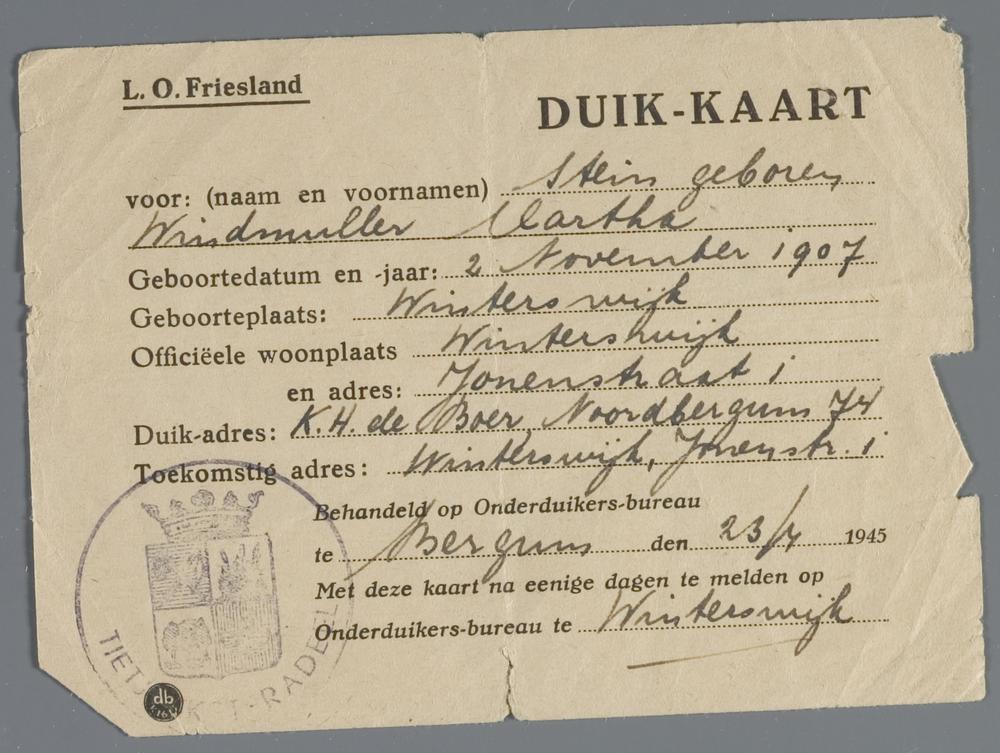 L. O. Friesland
DUIK-KAART
voor: (naam en voornamen) Stein geboren
Windmuller Martha
Geboortedatum en -jaar: 2 November 1907
Geboorteplaats: Winterswijk
Officiëele woonplaats Winterswijk
en adres: Jonenstraat 1
Duik-adres: K.H. de Boer, Noordbergum 74
Toekomstig adres: Winterswijk, Jonenstr. 1
Behandeld op Onderduikers-bureau
te Bergum den 23/4 1945
Met deze kaart na eenige dagen te melden op
Onderduikers-bureau te Winterswijk
db